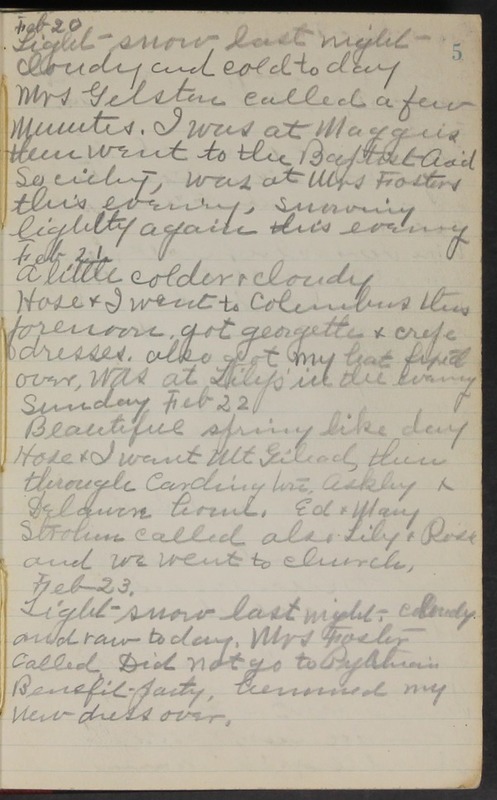 Feb 20
5
Light snow last night
cloudy and cold today
Mrs Gelston called a few
minutes. I was at Maggies
then went to the Baptist Aid
Society, was at Mrs Fosters
this evening, snowing
lightly again this evening
Feb 21
A little colder & cloudy
Hose & I went to Columbus this
forenoon, got georgette & crepe
dresses. also got my hat fixed
over, was at Lily's in the evening
Sunday Feb 22
Beautiful spring like day
Hose & I went Mt Gilead, then
through Cardington, Ashley &
Delaware home. Ed & Mary
Strohm called also Lily & Rose
and we went to church.
Feb 23.
Light snow last night, cloudy
and raw today. Mrs Foster
called, Did not go to Pythian
Benefit party, hemmed my
new dress over.